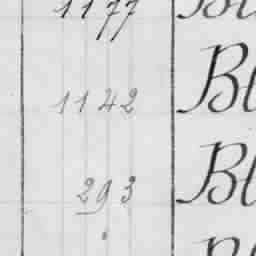 1177 Bl
1142 Bl
293 Bl